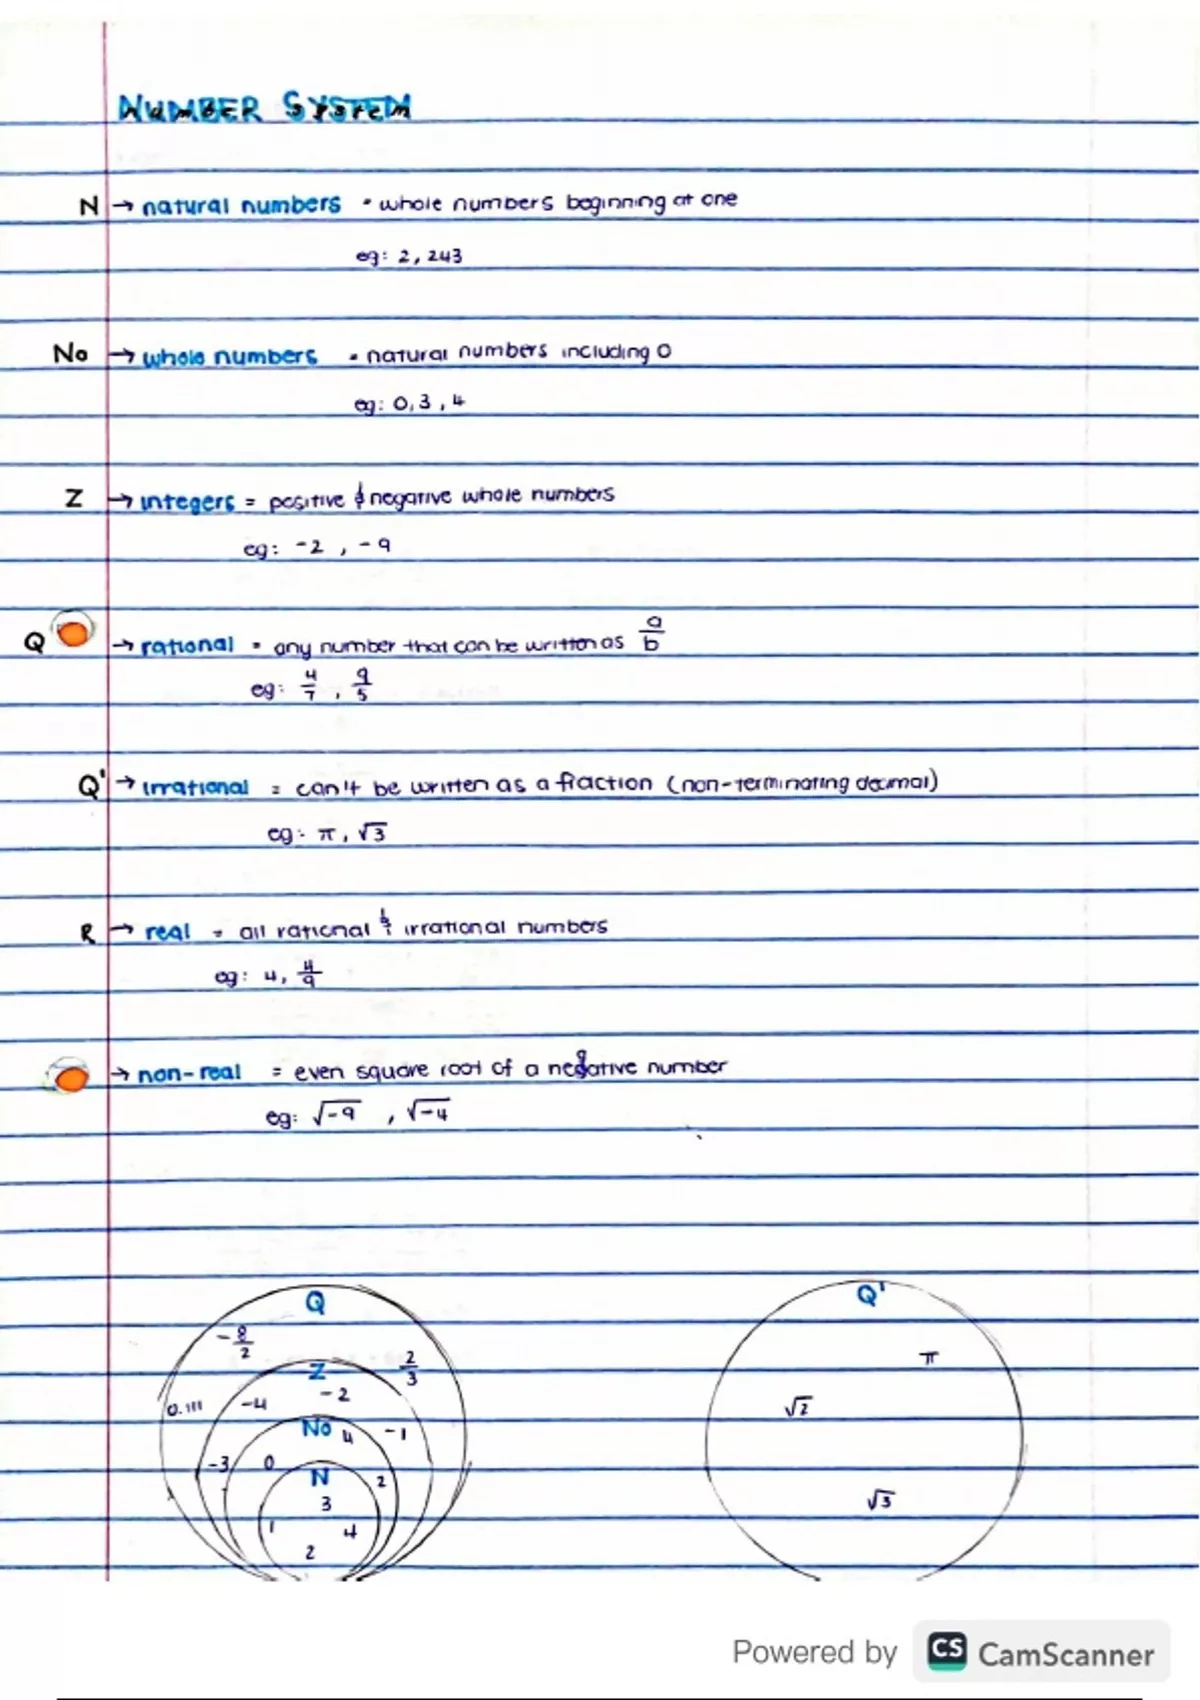 NUMBER SYSTEM
N → natural numbers • whole numbers beginning at one
eg: 2, 243
No → whole numbers • natural numbers including 0
eg: 0, 3, 4
Z → integers = positive & negative whole numbers
eg: -2, -9
Q → rational = any number that can be written as a/b
eg: 4/7, 9/5
Q' → irrational = can't be written as a fraction (non-terminating decimal)
eg: π, √3
R → real = all rational & irrational numbers
eg: 4, 4/9
→ non-real = even square root of a negative number
eg: √-9, √-4
Q
-8/2
2/3
0.111
Z
-4 -2
-1
-3
No 4
0
2
N
3
1 4
2
Q'
π
√2
√3
Powered by CS CamScanner